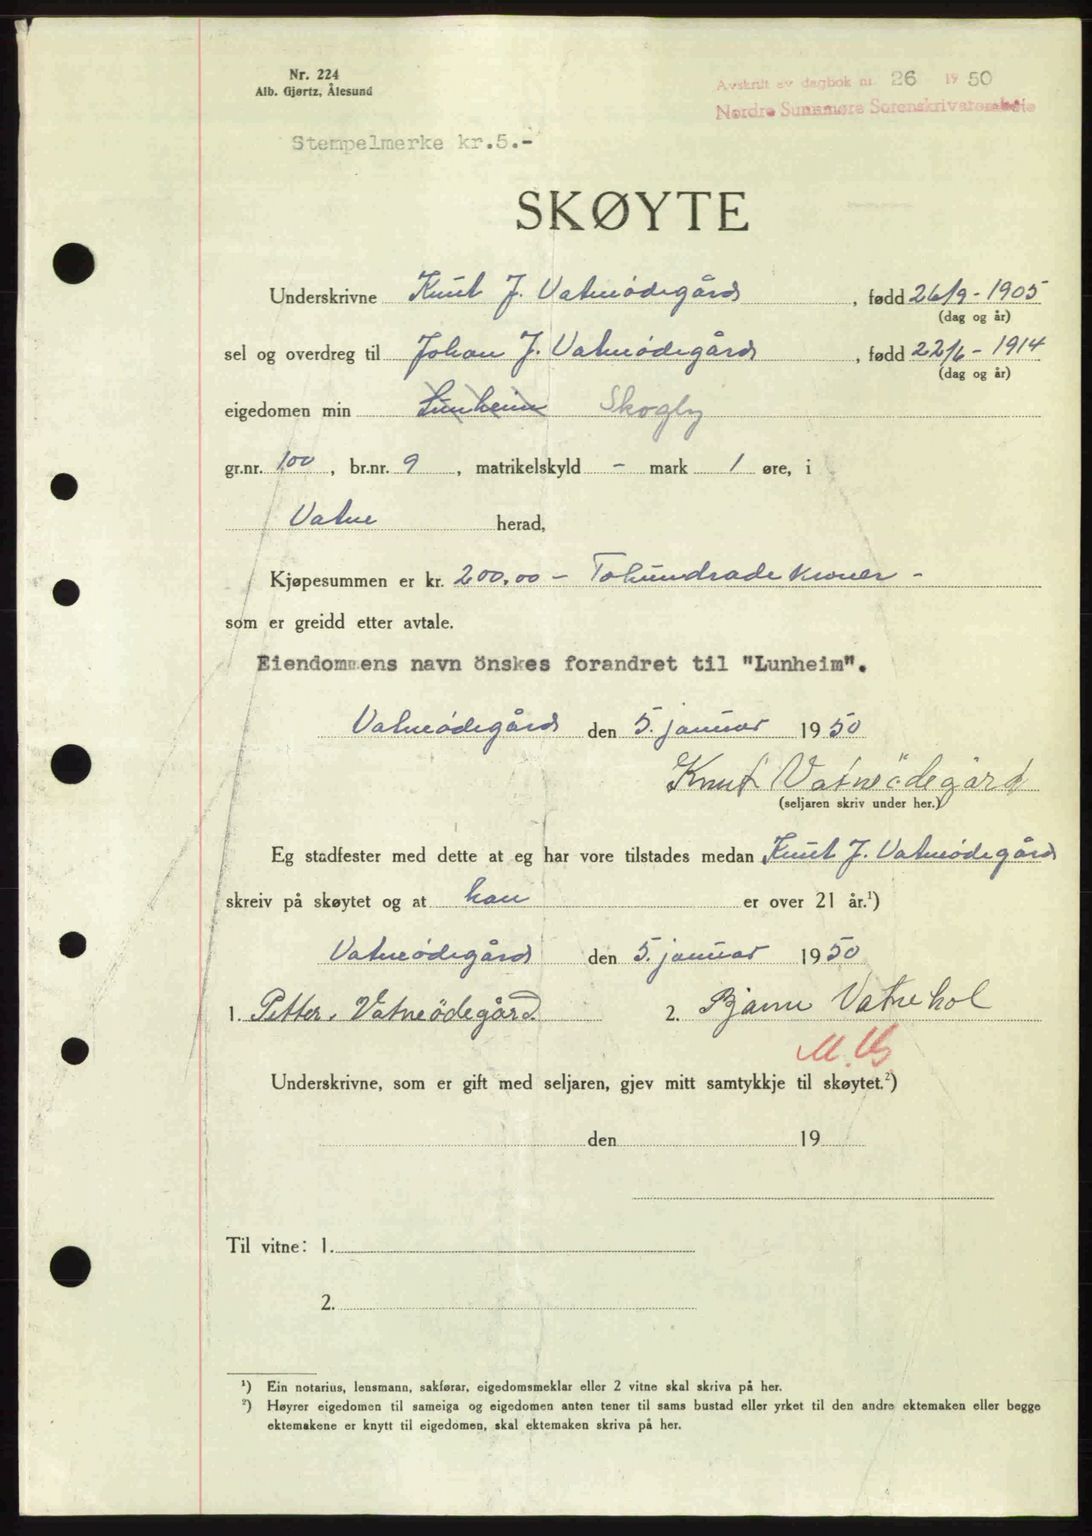 Nr. 224
Alb. Gjørtz, Ålesund
Avskrift av dagbok nr. 26 1950
Nordre Sunnmøre Sorenskriverembete
Stempelmerke kr.5.-
SKØYTE
Underskrivne Knut J. Vatneødegård, fødd 26/9-1905
(dag og år)
sel og overdreg til Johan J. Vatneødegård, fødd 22/6-1914
(dag og år)
eigedomen min Lunheim Skogly
gr.nr. 100, br.nr. 9, matrikelskyld - mark 1 øre, i
Vatne herad,
Kjøpesummen er kr. 200,00 - Tohundrade kroner -
som er greidd etter avtale.
Eiendommens navn önskes forandret til "Lunheim".
Vatneødegård den 5. januar 1950
Knut Vatneödegård
(seljaren skriv under her.)
Eg stadfester med dette at eg har vore tilstades medan Knut J. Vatneødegård
skreiv på skøytet og at han er over 21 år.¹)
Vatneødegård den 5. januar 1950
1. Petter. Vatneödegård. 2. Bjarne Vatnehol
Underskrivne, som er gift med seljaren, gjev mitt samtykkje til skøytet.²)
den 19
Til vitne: 1.
2.
¹) Ein notarius, lensmann, sakførar, eigedomsmeklar eller 2 vitne skal skriva på her.
²) Høyrer eigedomen til sameiga og eigedomen anten tener til sams bustad eller yrket til den andre ektemaken eller begge
ektemakene er knytt til eigedomen, skal ektemaken skriva på her.